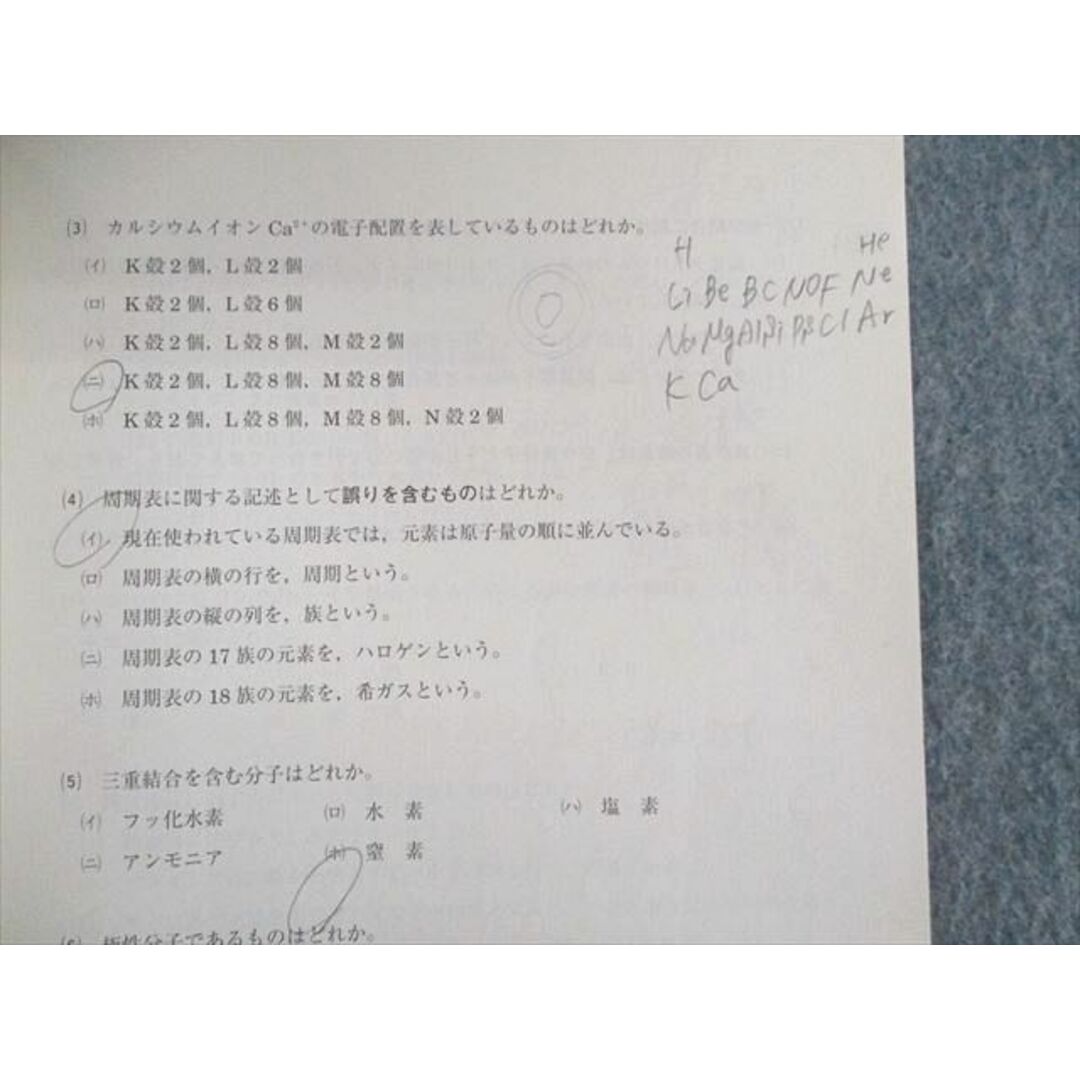 (3) カルシウムイオン Ca²⁺の電子配置を表しているものはどれか。
(イ) K殻2個，L殻2個
(ロ) K殻2個，L殻6個
(ハ) K殻2個，L殻8個，M殻2個
(ニ) K殻2個，L殻8個，M殻8個
(ホ) K殻2個，L殻8個，M殻8個，N殻2個
H He
Li Be B C N O F Ne
Na Mg Al Si P S Cl Ar
K Ca
(4) 周期表に関する記述として誤りを含むものはどれか。
(イ) 現在使われている周期表では，元素は原子量の順に並んでいる。
(ロ) 周期表の横の行を，周期という。
(ハ) 周期表の縦の列を，族という。
(ニ) 周期表の17族の元素を，ハロゲンという。
(ホ) 周期表の18族の元素を，希ガスという。
(5) 三重結合を含む分子はどれか。
(イ) フッ化水素 (ロ) 水素 (ハ) 塩素
(ニ) アンモニア (ホ) 窒素
(6) 極性分子であるものはどれか。